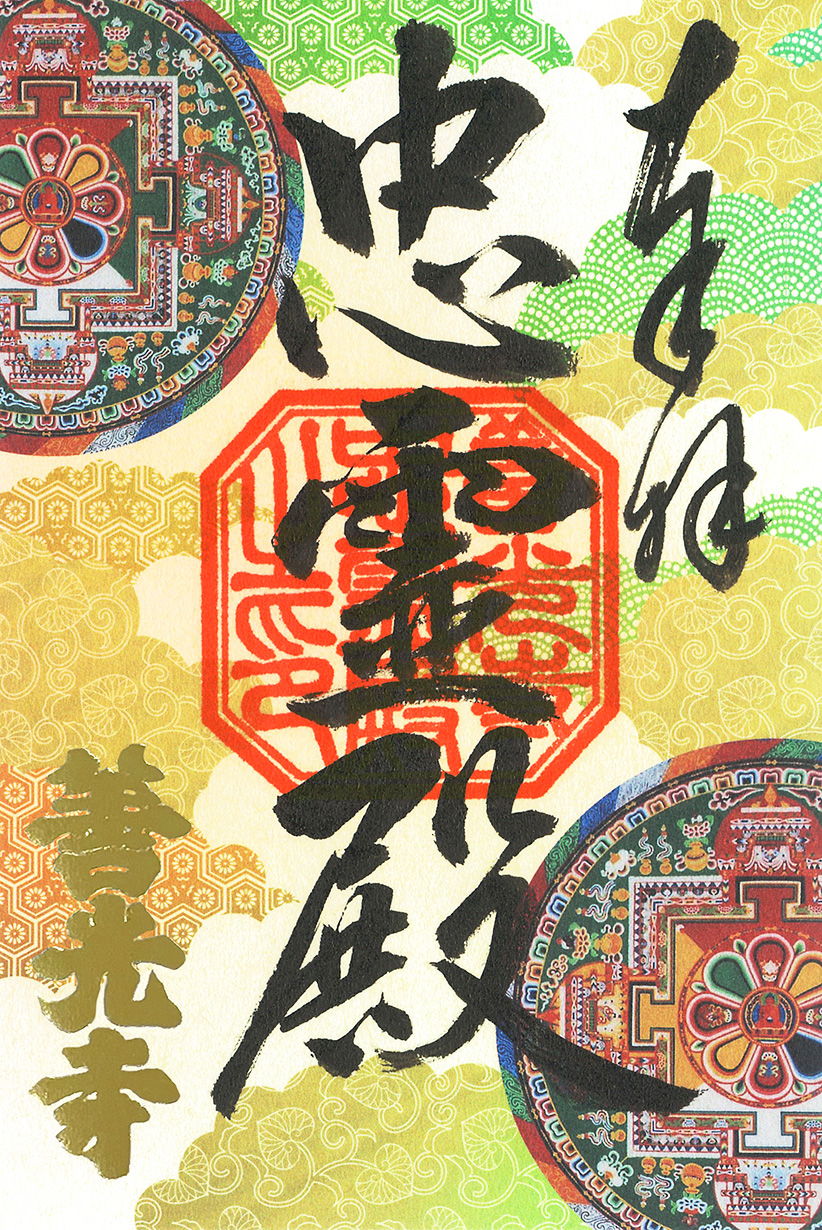 奉拝
忠霊殿
善光寺